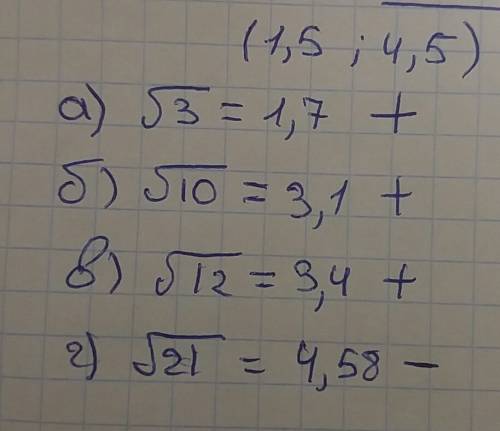 (1,5 ; 4,5)
а) √3 = 1,7 +
б) √10 = 3,1 +
в) √12 = 3,4 +
г) √21 = 4,58 −